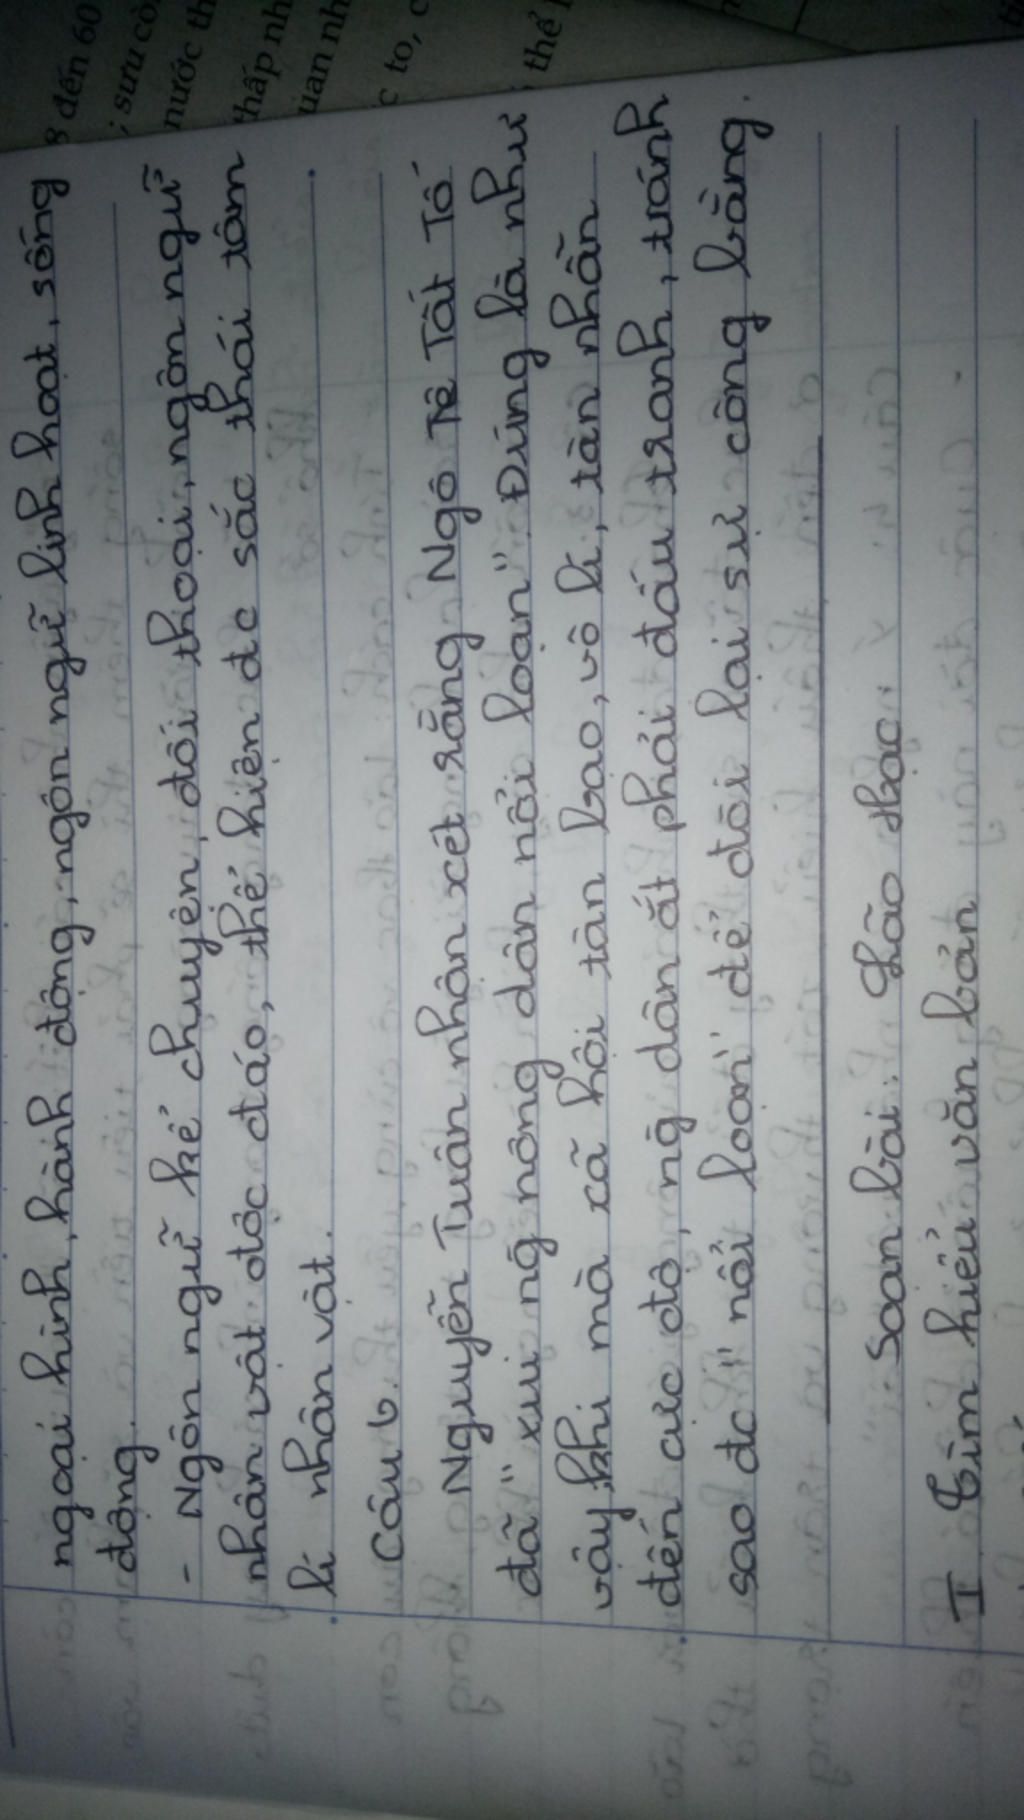 8 đến 60
; sưu cò
nước th
thấp nh
uan nh
c to, c
; thể
ngoại hình, hành động, ngôn ngữ linh hoạt, sống
động.
- Ngôn ngữ kể chuyện, đối thoại, ngôn ngữ
nhân vật độc đáo, thể hiện đc sắc thái tâm
lí nhân vật.
Câu 6.
Nguyễn Tuân nhận xét rằng Ngô Tê Tất Tố
đã " xui ng nông dân nổi loạn". Đúng là như
vậy, khi mà xã hội tàn bạo, vô lí, tàn nhẫn
đến cực độ, ng dân ắt phải đấu tranh, tránh
sao đc " nổi loạn" để đòi lại sự công bằng.
Soạn bài: Lão Hạc
I Tìm hiểu văn bản